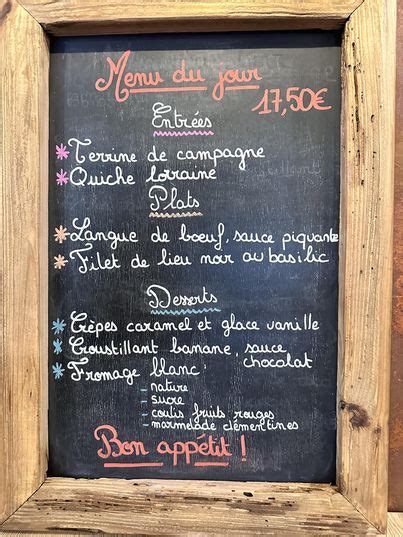 Menu du jour
17,50€
Entrées
* Terrine de campagne
* Quiche lorraine
Plats
* Langue de bœuf, sauce piquante
* Filet de lieu noir au basilic
Desserts
* Crêpes caramel et glace vanille
* Croustillant banane, sauce
chocolat
* Fromage blanc :
- nature
- sucre
- coulis fruits rouges
- marmelade clémentines
Bon appétit !